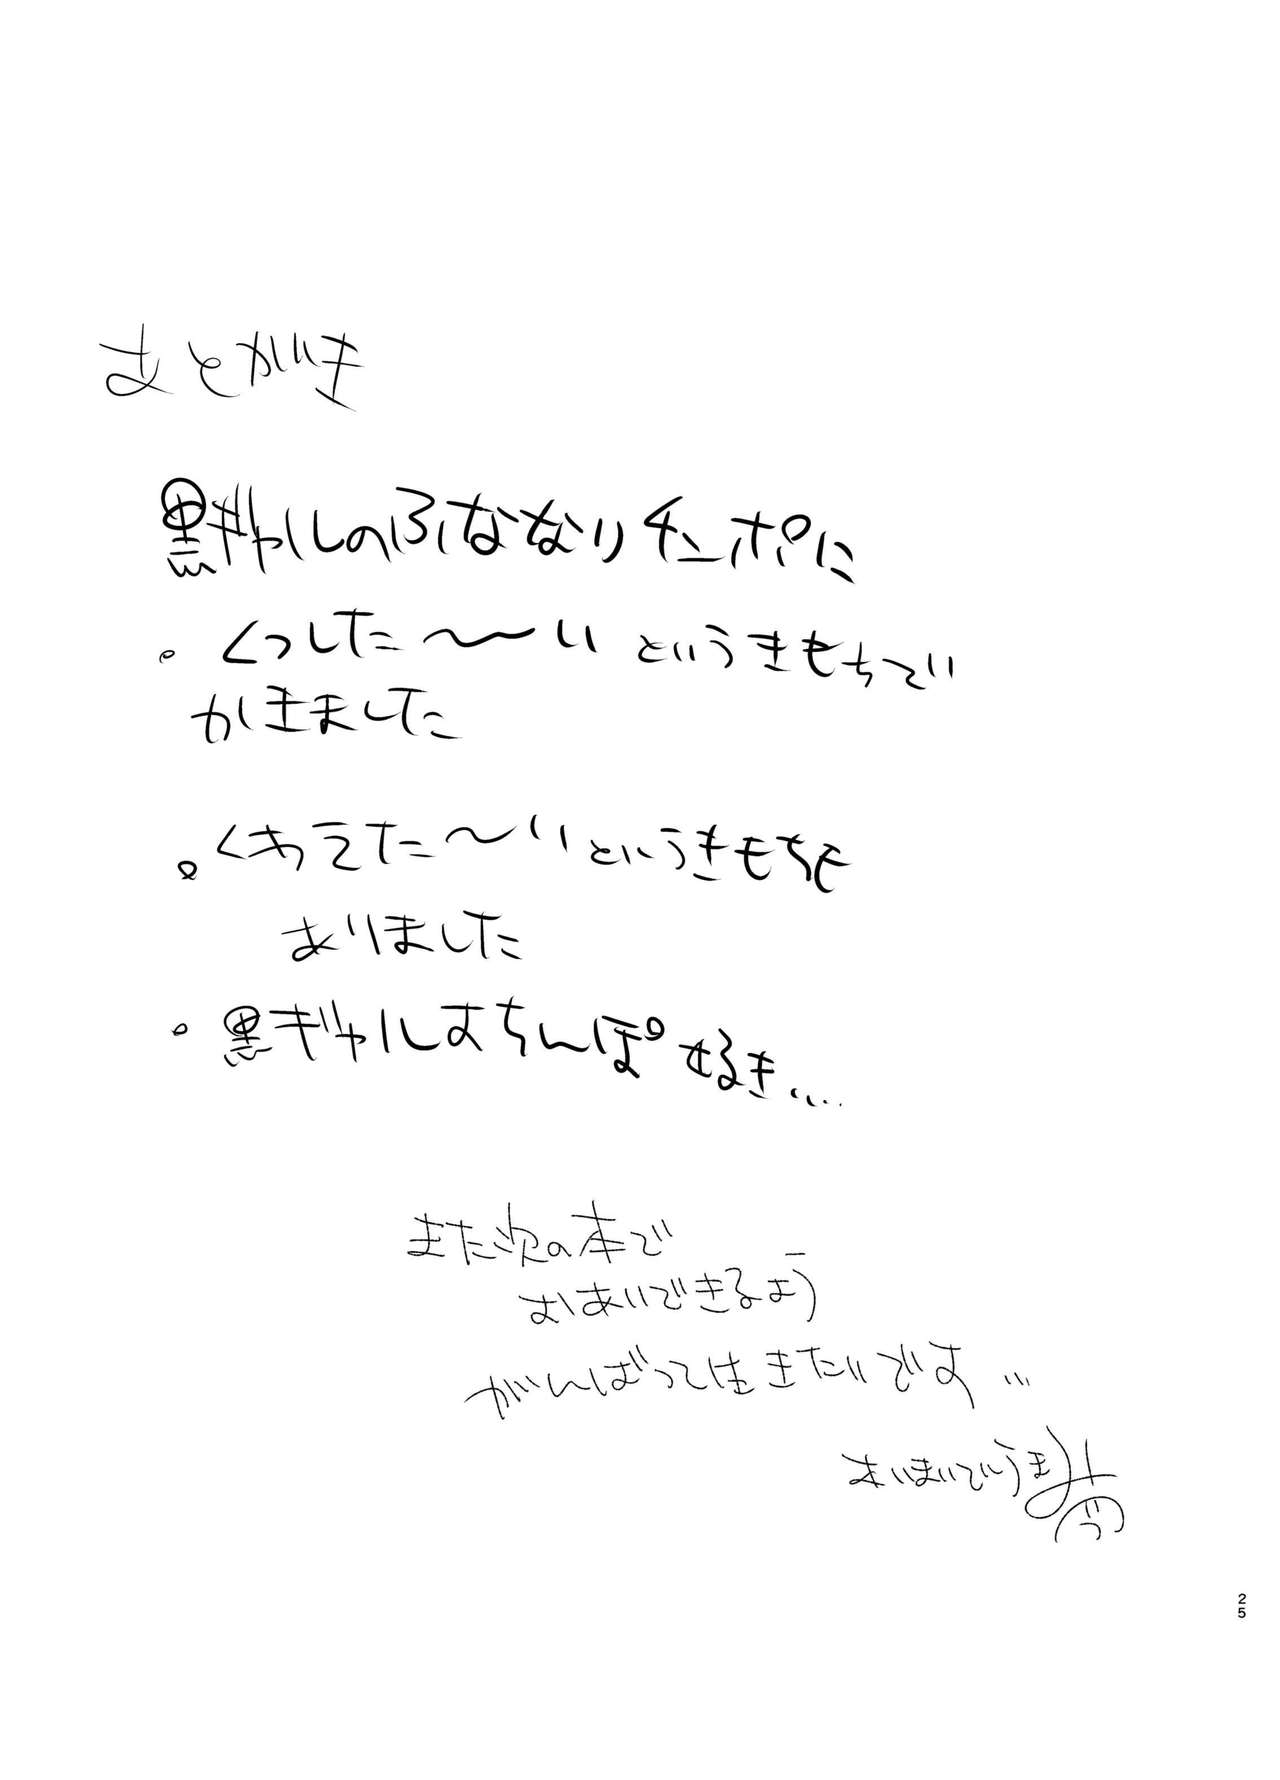 あとがき
黒ギャルのふたなりチンポに
・くっした〜〜い というきもちで
かきました
・くわえた〜いというきもちも
ありました
・黒ギャルおちんぽ好き….
また次の本で
おあいできるよう
がんばって生きたいです…
25